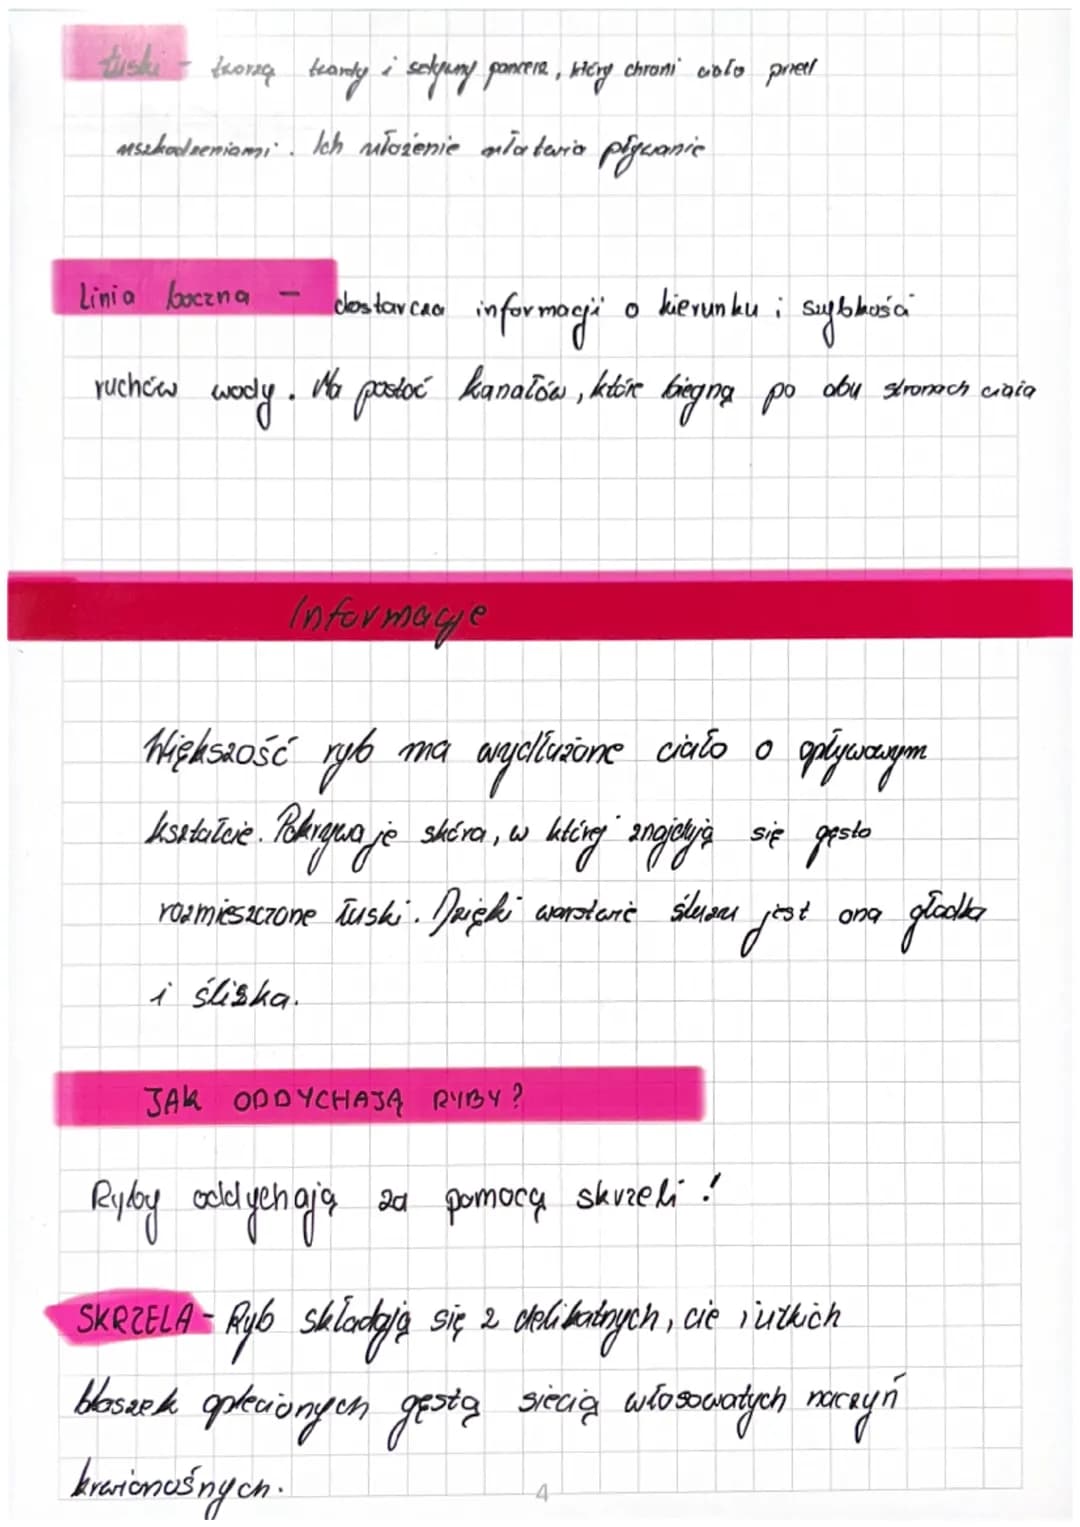 Łuski - tworzą twardy i sztywny pancerz, który chroni ciało przed
uszkodzeniami. Ich ułożenie ułatwia pływanie
Linia boczna - dostarcza informacji o kierunku i szybkości
ruchów wody. Ma postać kanałów, które biegną po obu stronach ciała
Informacje
Większość ryb ma wydłużone ciało o opływowym
kształcie. Pokrywa je skóra, w której znajdują się gęsto
rozmieszczone łuski. Dzięki warstwie śluzu jest ona gładka
i śliska.
JAK ODDYCHAJĄ RYBY?
Ryby oddychają za pomocą skrzeli!
SKRZELA - Ryb składają się z delikatnych, cieniutkich
blaszek oplecionych gęstą siecią włosowatych naczyń
krwionośnych.
4